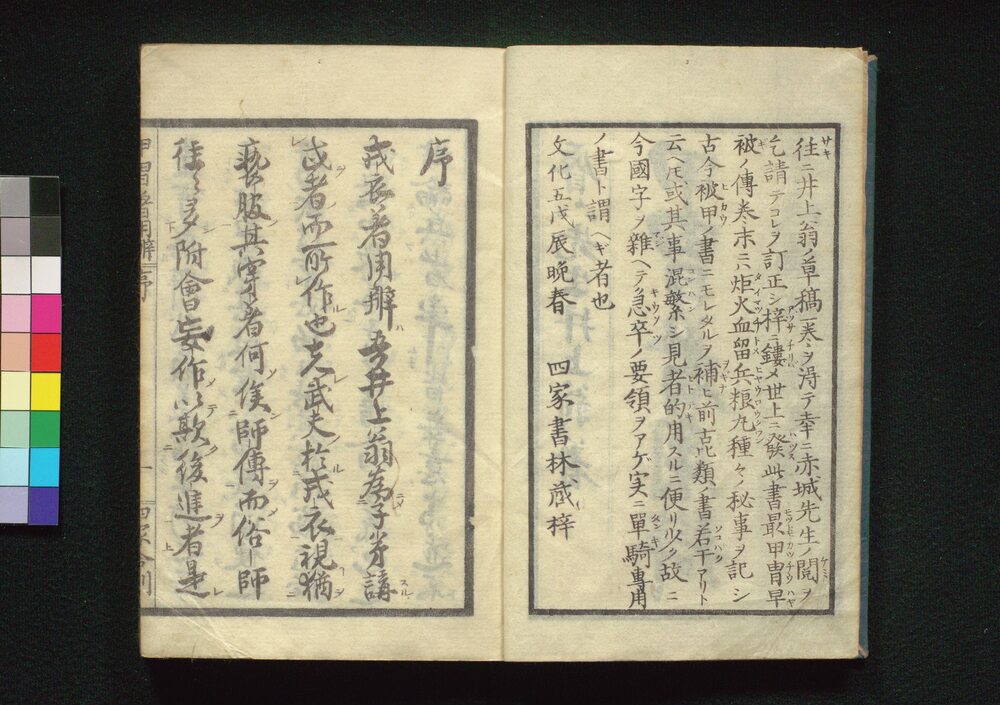 往ニ井上翁ノ草稿一巻ヲ得テ幸ニ赤城先生ノ閲ヲ
乞請テコレヲ訂正シ梓ニ鏤メ世上ニ發此書最甲冑早
被ノ傳巻末ニ炬火血留兵粮丸種々ノ秘事ヲ記シ
古今被甲ノ書ニモレタルヲ補ヒ前古此類ノ書若干アリト
云ヘ𪜈或其事混繁シ見者的用スルニ便リ少ク故ニ
今國字ヲ雜ヘテ急卒ノ要領ヲアゲ実ニ單騎專用
ノ書ト謂ベキ者也
文化五戊辰晩春 四家書林蔵梓
序
戎衣着用辨ハ吾井上翁為子弟講
武者而所作也夫武夫於戎衣視猶
褻服其穿着何俟師傳而俗士師
往々多附會妄作以欺後進者是
甲冑着用辨 序 一 四家合刻